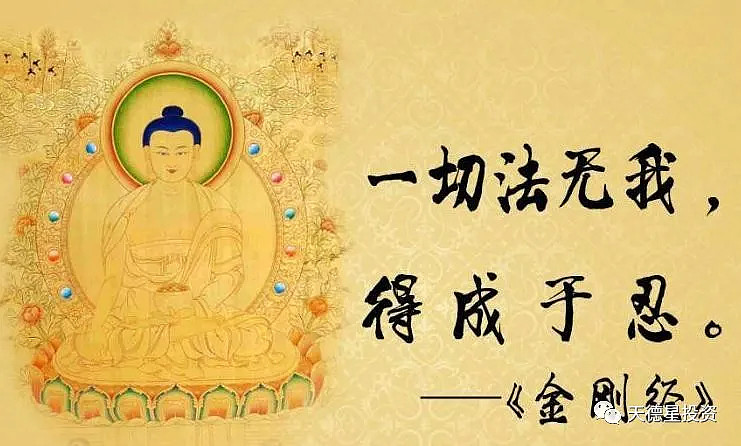 一切法无我，
得成于忍。
——《金刚经》
天德星投资